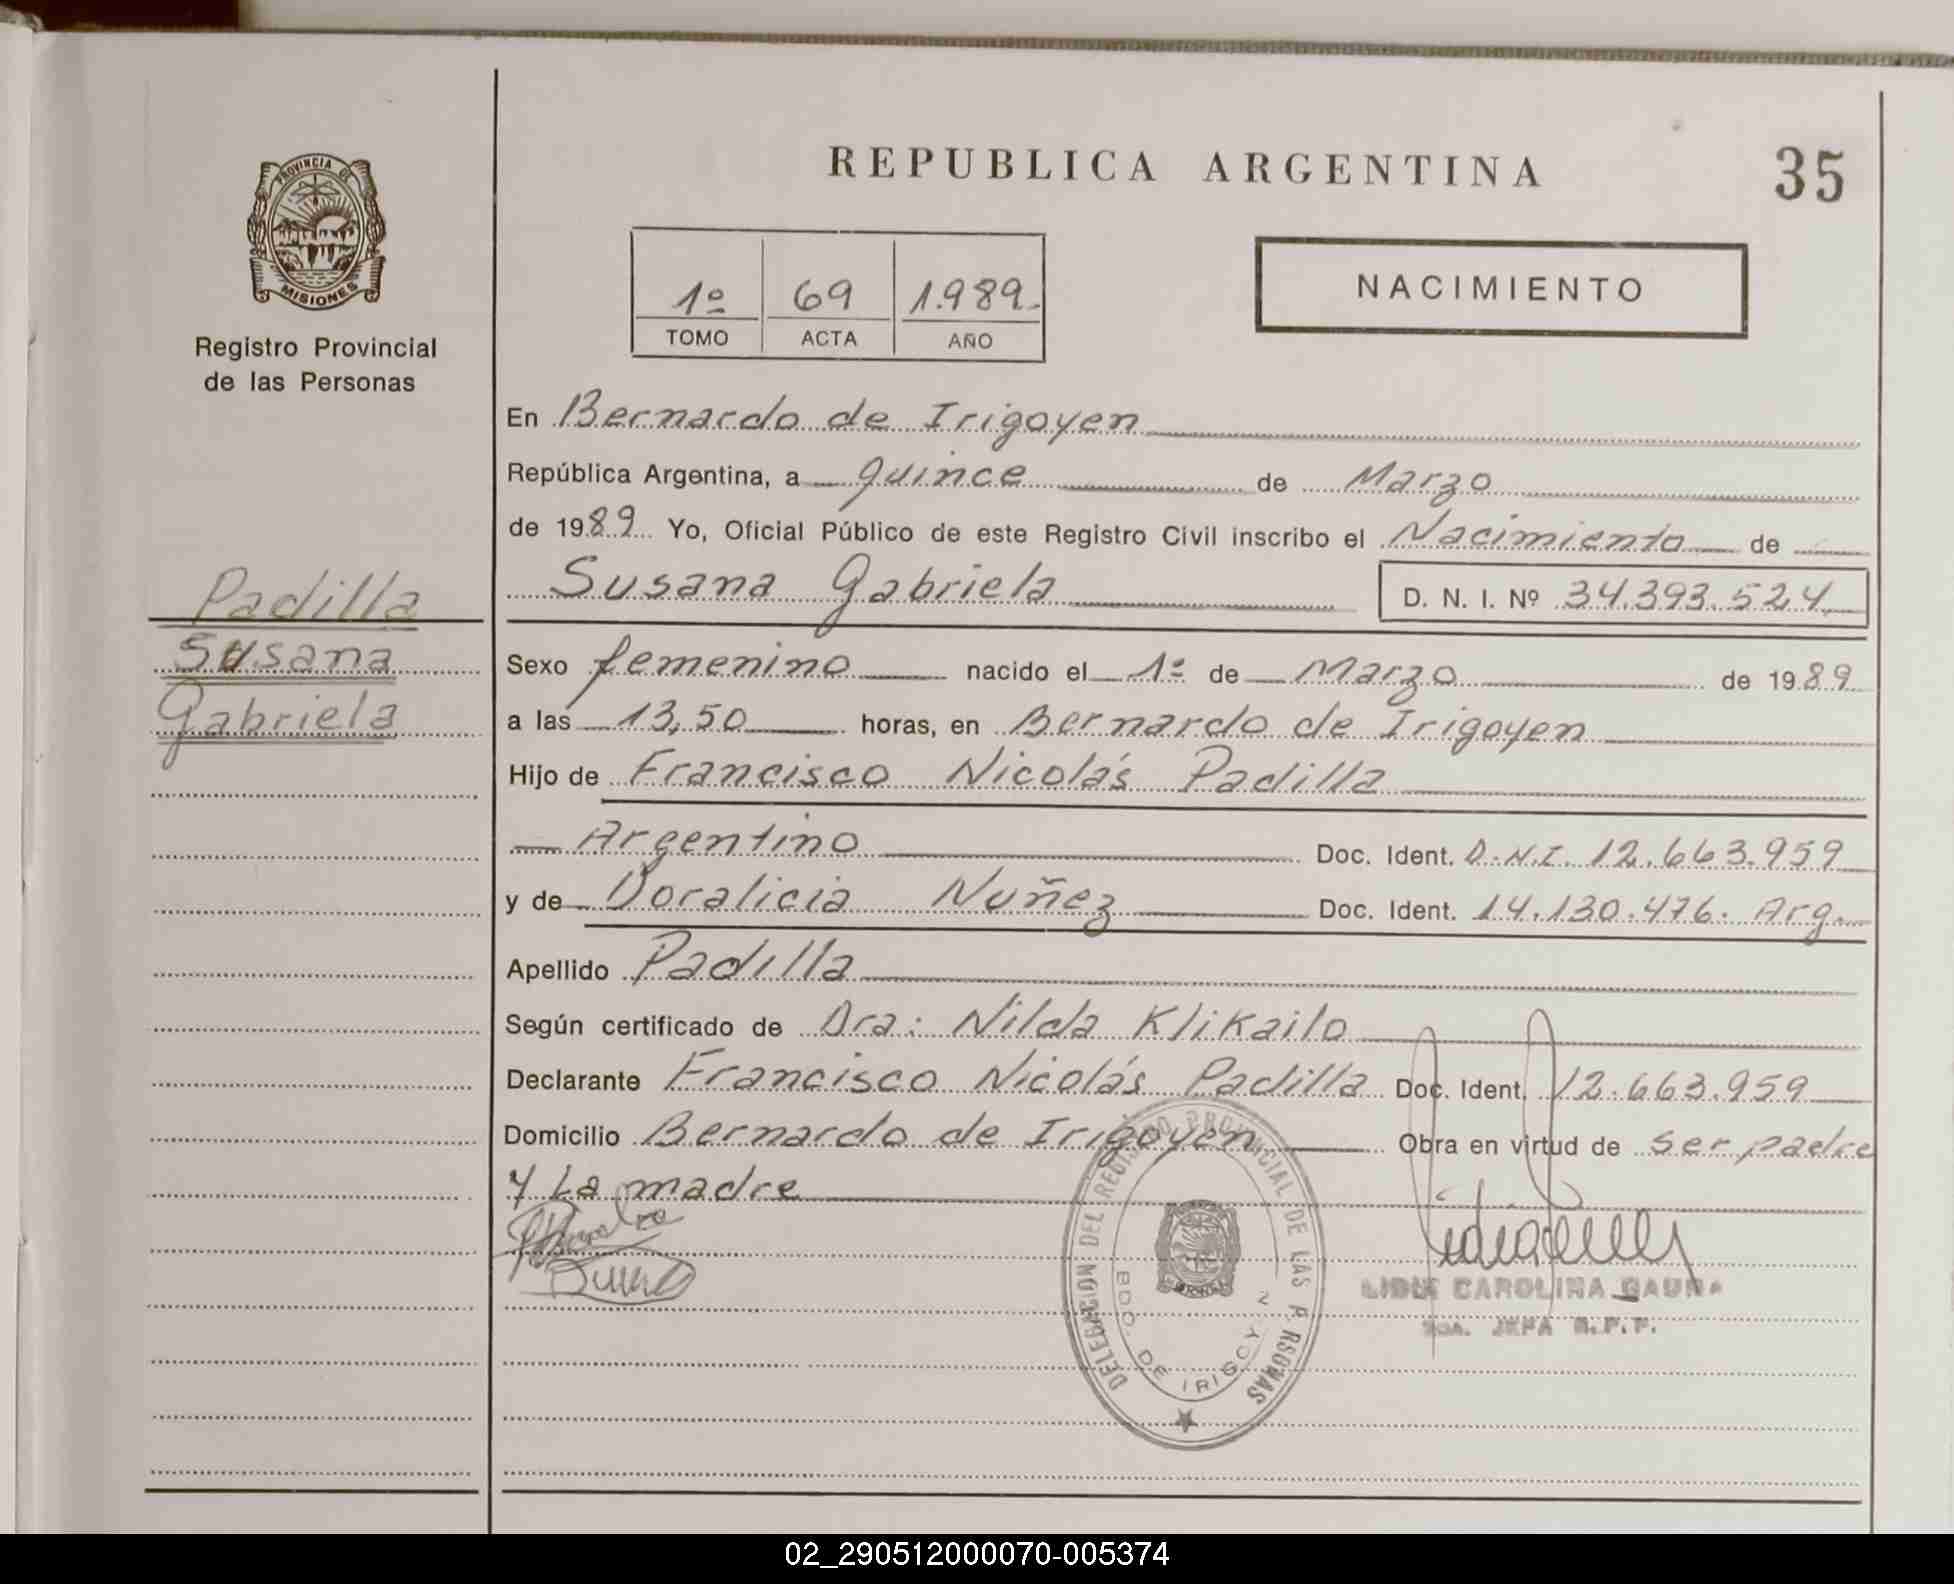 REPUBLICA ARGENTINA
35
PROVINCIA DE
MISIONES
Registro Provincial
de las Personas
1º 69 1.989.
TOMO ACTA AÑO
NACIMIENTO
En Bernardo de Irigoyen
República Argentina, a quince de Marzo
de 1989 Yo, Oficial Público de este Registro Civil inscribo el Nacimiento de
Susana Gabriela D. N. I. Nº 34.393.524
Padilla
Susana
Gabriela
Sexo femenino nacido el 1º de Marzo de 1989
a las 13,50 horas, en Bernardo de Irigoyen
Hijo de Francisco Nicolás Padilla
Argentino Doc. Ident. D.N.I. 12.663.959
y de Doralicia Nuñez Doc. Ident. 14.130.476. Arg.
Apellido Padilla
Según certificado de Dra: Nilda Klikailo
Declarante Francisco Nicolás Padilla Doc. Ident. 12.663.959
Domicilio Bernardo de Irigoyen Obra en virtud de ser padre
y La madre
DELEGACION DEL REGISTRO PROVINCIAL DE LAS P RSONAS
BDO. DE IRIGOY N
CAROLINA
JEFA R.P.P.
02_290512000070-005374